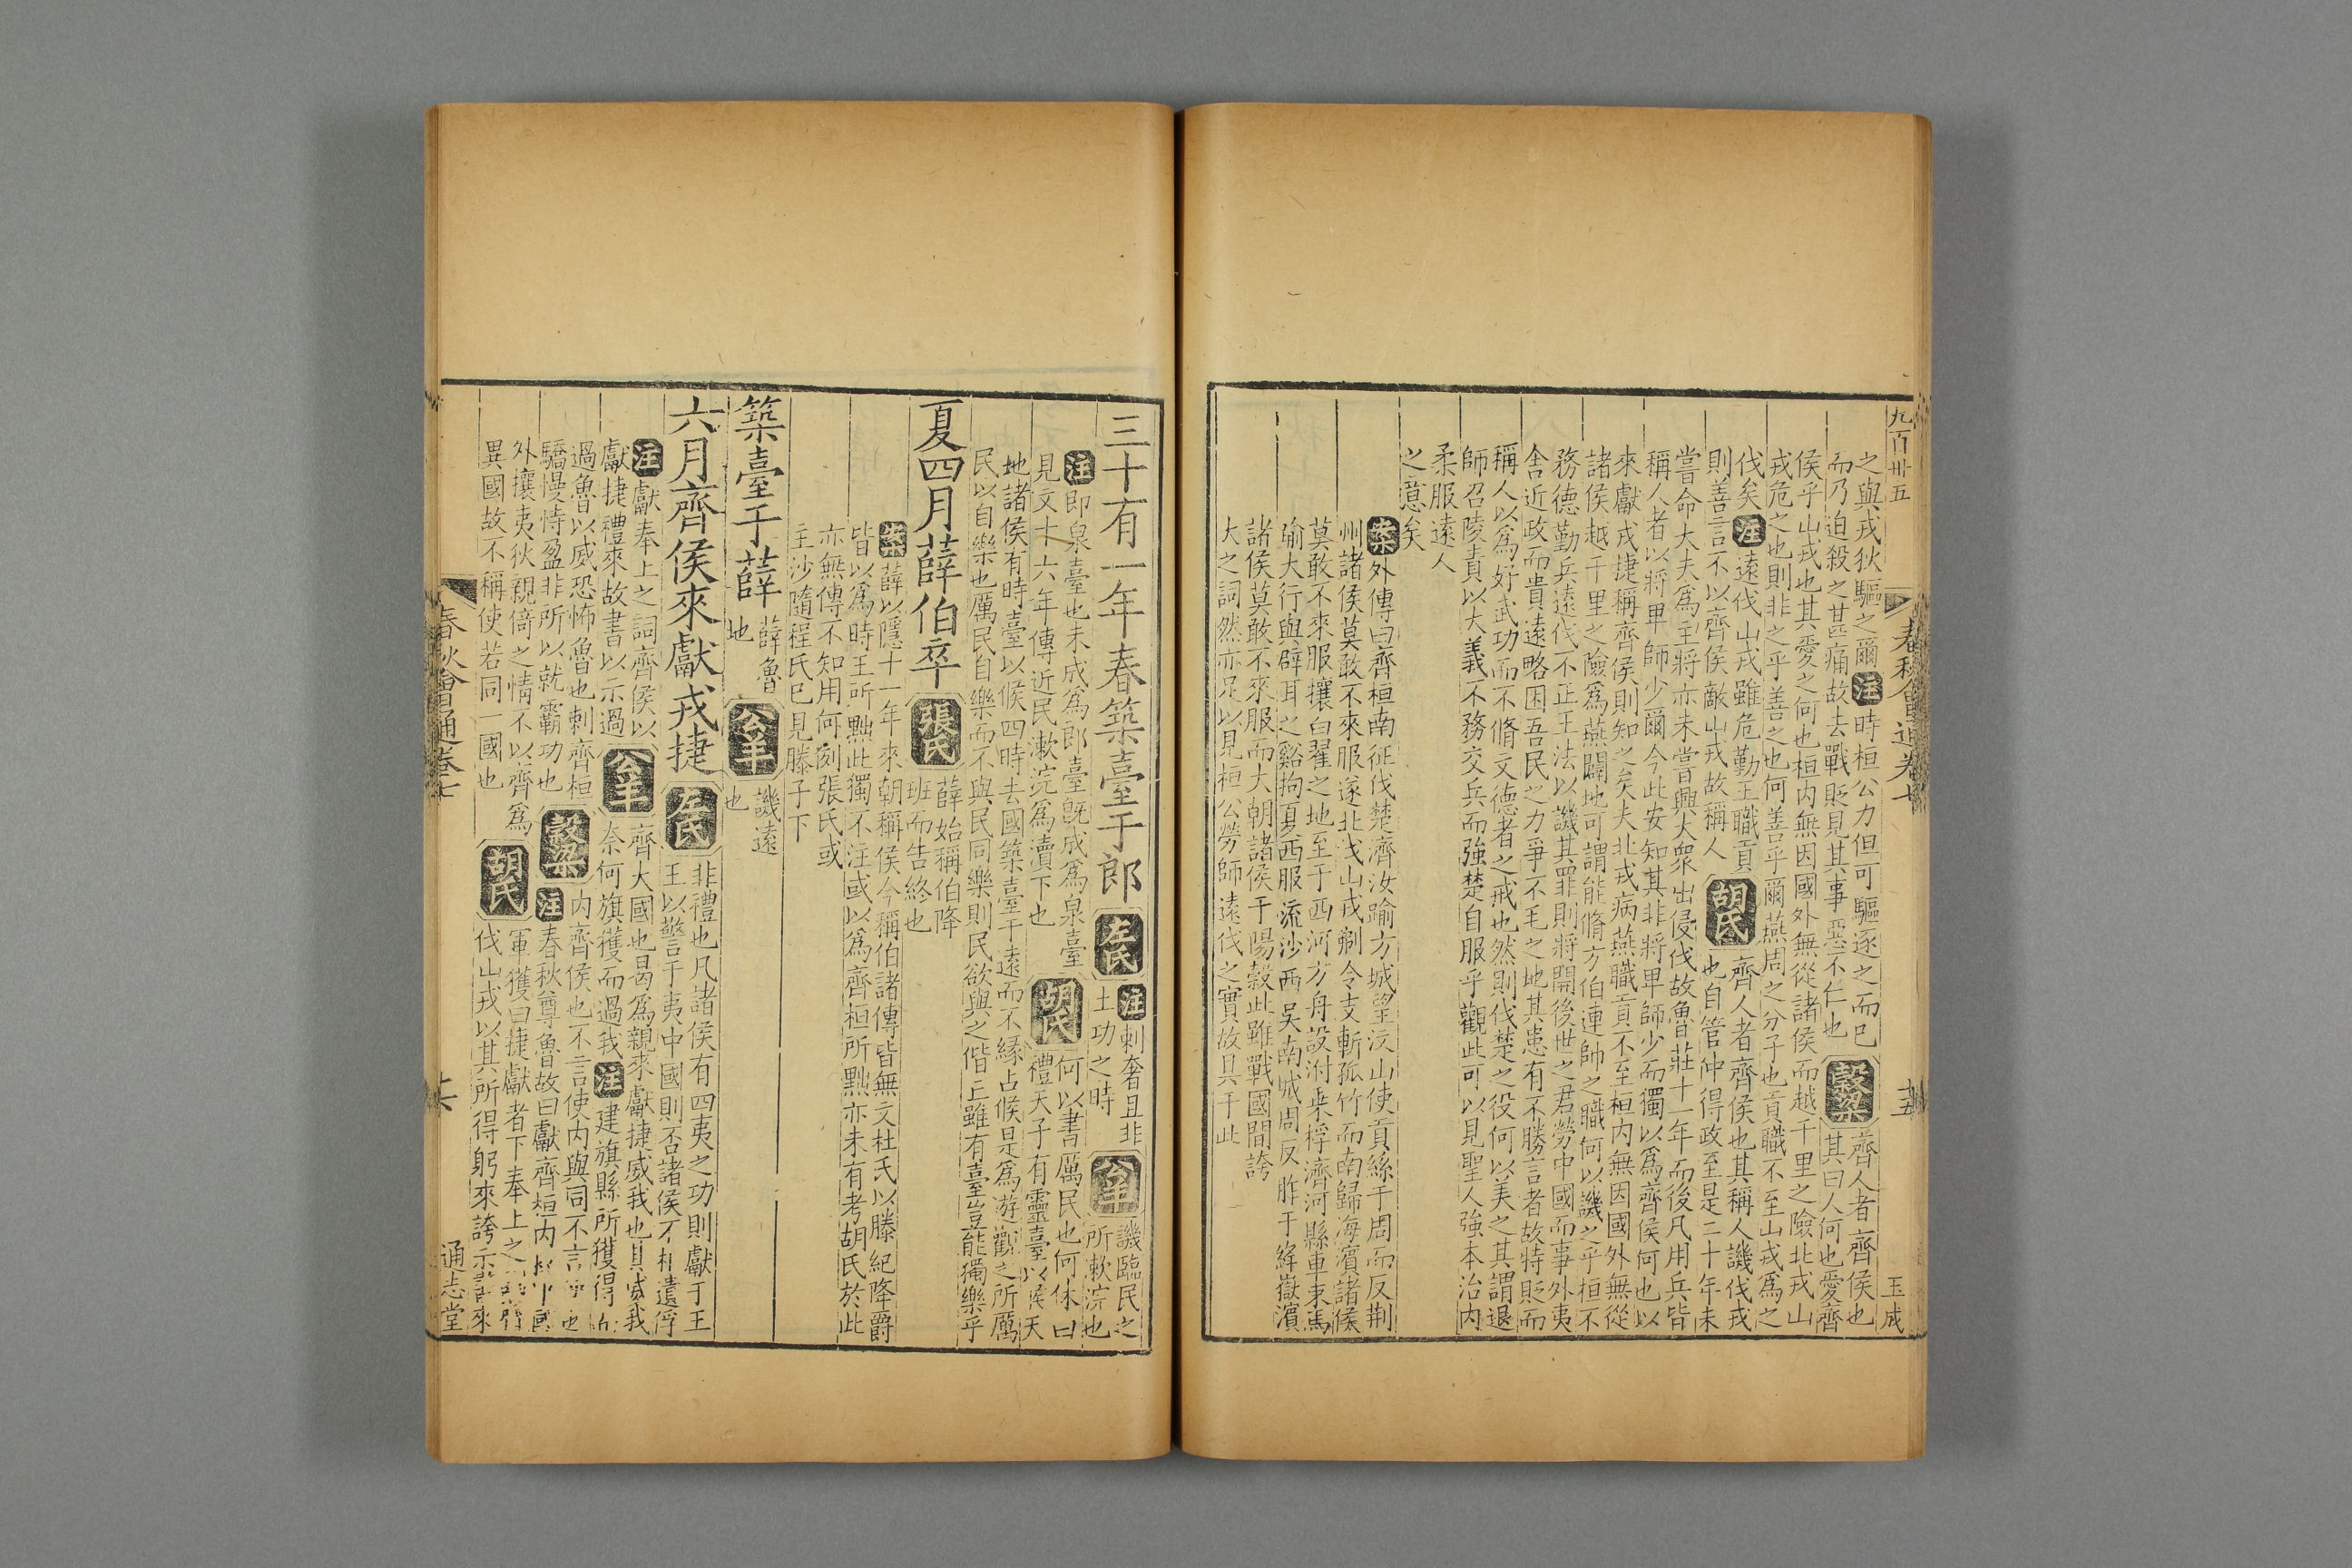 九百卅五 春秋會通卷七 十五 玉成
之與戎狄驅之爾注時桓公力但可驅逐之而已
而乃迫殺之甚痛故去戰貶見其事惡不仁也
穀梁
齊人者齊侯也
其曰人何也愛齊
侯乎山戎也其愛之何也桓内無因國外無從諸侯而越千里之險北戎山
戎危之也則非之乎善之也何善乎爾燕周之分子也貢職不至山戎爲之
伐矣注遠伐山戎雖危勤王職貢
則善言不以齊侯敵山戎故稱人
胡氏
齊人者齊侯也其稱人譏伐戎
也自管仲得政至是二十年未
嘗命大夫爲主將亦未嘗興大衆出侵伐故魯莊十一年而後凡用兵皆
稱人者以將卑師少爾今此安知其非將卑師少而獨以爲齊侯何也以
來獻戎捷稱齊侯則知之矣夫北戎病燕職貢不至桓内無因國外無從
諸侯越千里之險爲燕闢地可謂能脩方伯連帥之職何以譏之乎桓不
務德勤兵遠伐不正王法以譏其罪則將開後世之君勞中國而事外夷
舍近政而貴遠略困吾民之力爭不毛之地其患有不勝言者故特貶而
稱人以爲好武功而不脩文德者之戒也然則伐楚之役何以美之其謂退
師召陵責以大義不務交兵而強楚自服乎觀此可以見聖人強本治内
柔服遠人
之意矣
案外傳曰齊桓南征伐楚濟汝踰方城望汶山使貢絲于周而反荆
州諸侯莫敢不來服遂北伐山戎刜令支斬孤竹而南歸海濱諸侯
莫敢不來服攘白翟之地至于西河方舟設泭乘桴濟河縣車束馬
踰大行與辟耳之谿拘夏西服流沙西吳南城周反胙于絳嶽濱
諸侯莫敢不來服而大朝諸侯于陽穀此雖戰國間誇
大之詞然亦足以見桓公勞師遠伐之實故具于此
三十有一年春築臺于郎
左氏
注刺奢且非
土功之時
公羊
譏臨民之
所漱浣也
注即泉臺也未成爲郎臺既成爲泉臺
見文十六年傳近民漱浣爲瀆下也
胡氏
何以書厲民也何休曰
禮天子有靈臺以候天
地諸侯有時臺以候四時去國築臺于遠而不緣占候是爲遊觀之所厲
民以自樂也厲民自樂而不與民同樂則民欲與之偕亡雖有臺豈能獨樂乎
夏四月薛伯卒
張氏
薛始稱伯降
班而告終也
案薛以隱十一年來朝稱侯今稱伯諸傳皆無文杜氏以滕紀降爵
皆以爲時王所黜此獨不注或以爲齊桓所黜亦未有考胡氏於此
亦無傳不知用何例張氏或
主沙隨程氏已見滕子下
築臺于薛
薛魯
地
公羊
譏遠
也
六月齊侯來獻戎捷
左氏
非禮也凡諸侯有四夷之功則獻于王
王以警于夷中國則否諸侯不相遺俘
注獻奉上之詞齊侯以
獻捷禮來故書以示過
公羊
齊大國也曷爲親來獻捷威我也其威我
奈何旗獲而過我注建旗縣所獲得以
過魯以威恐怖魯也刺齊桓
驕慢恃盈非所以就霸功也
穀梁
内齊侯也不言使内與同不言使也
注春秋尊魯故曰獻齊桓内救中國
外攘夷狄親倚之情不以齊爲
異國故不稱使若同一國也
胡氏
軍獲曰捷獻者下奉上之
伐山戎以其所得躬來誇示書來
春秋會通卷七 十六 通志堂